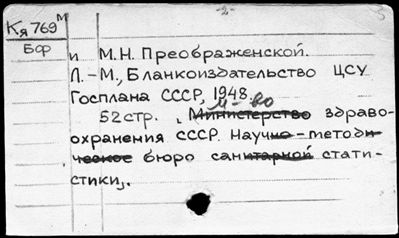 -2-
Кя 769 м
Бф
и М.Н. Преображенской.
Л.-М., Бланкоиздательство ЦСУ
Госплана СССР, 1948.
м-во
52 стр. , Министерство здраво-
охранения СССР. Научно-методи-
ческое бюро санитарной стати-
стики,.